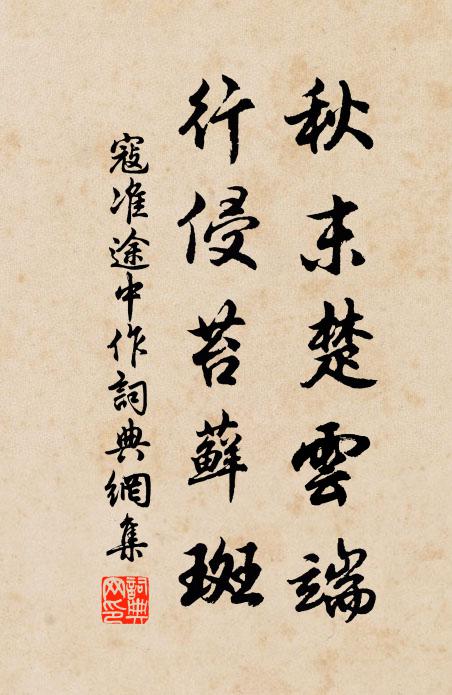 秋末楚雲端
行侵苔蘚斑
寇准途中作詞典網集
詞典